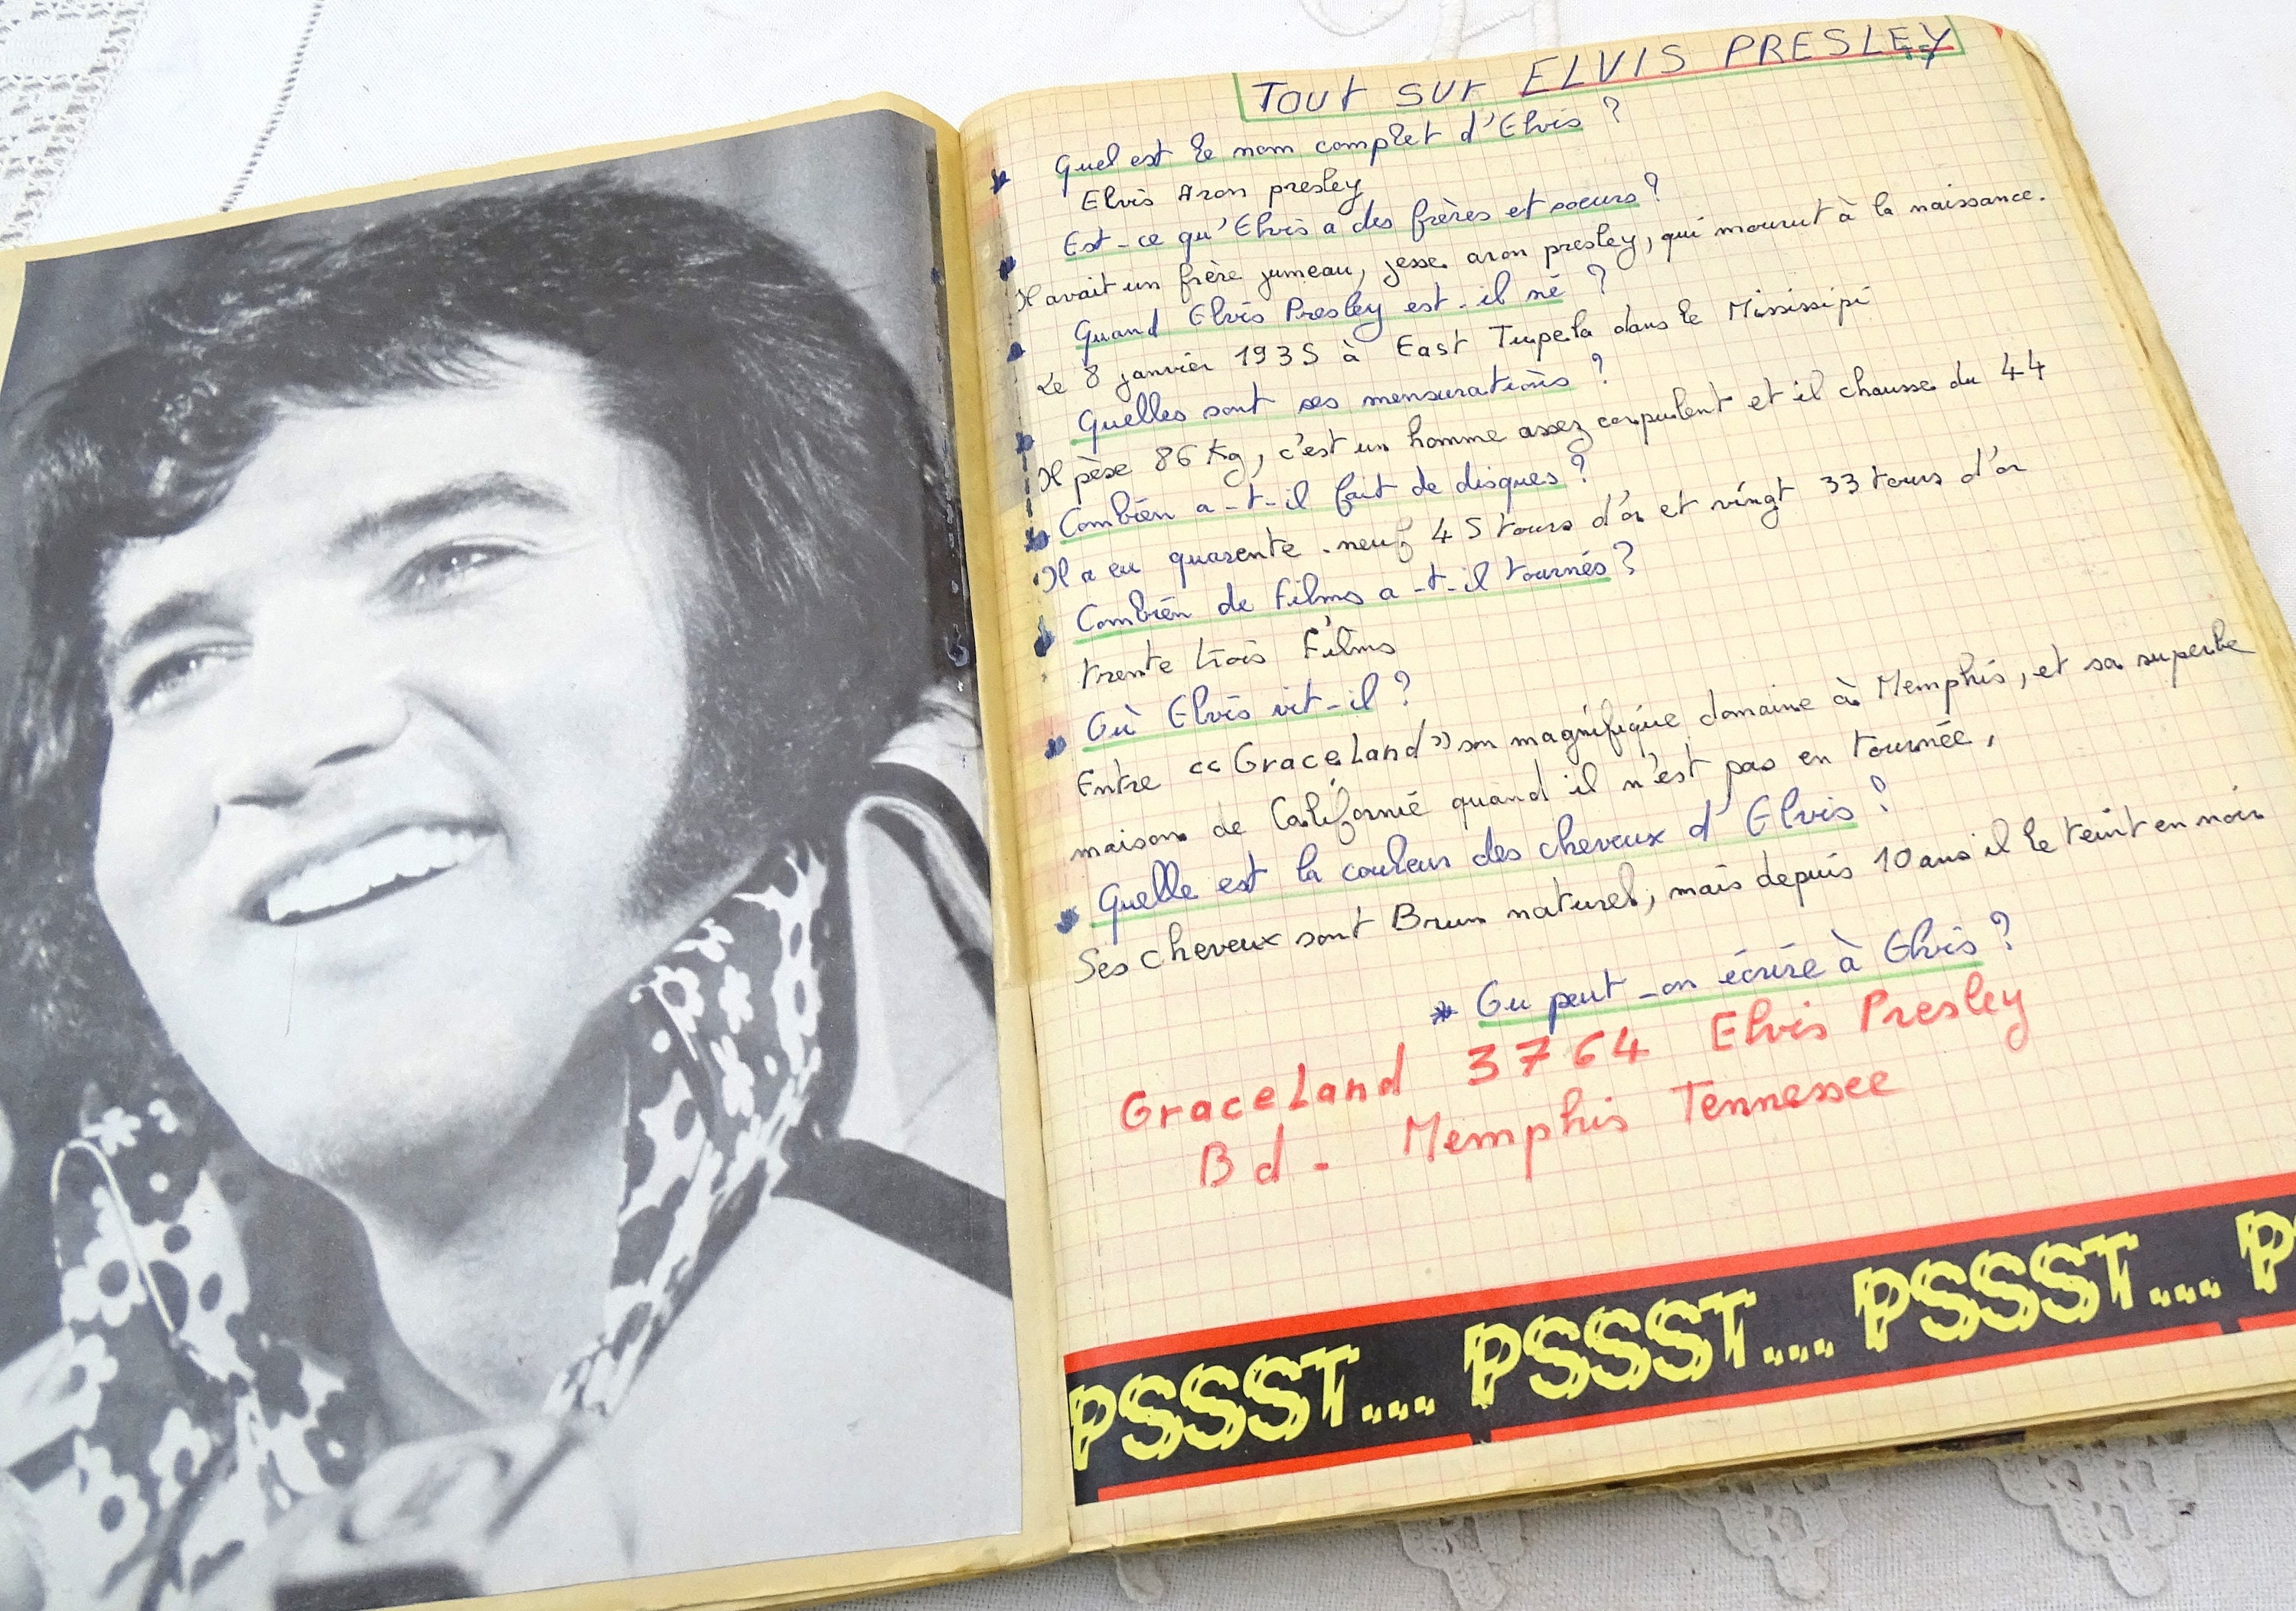 Tout sur ELVIS PRESLEY
* Quel est le nom complet d'Elvis ?
Elvis Aron presley
* Est-ce qu'Elvis a des frères et soeurs ?
Il avait un frère jumeau, jesse aron presley, qui mourut à la naissance.
* Quand Elvis Presley est-il né ?
Le 8 janvier 1935 à East Tupela dans le Mississipi
* Quelles sont ses mensurations ?
Il pèse 86 Kg, c'est un homme assez corpulent et il chausse du 44
* Combien a-t-il fait de disques ?
Il a eu quarente-neuf 45 tours d'or et vingt 33 tours d'or
* Combien de films a-t-il tournés ?
trente trois Films
* Où Elvis vit-il ?
Entre «GraceLand» son magnifique domaine à Memphis, et sa superbe
maison de Californie quand il n'est pas en tournée,
* Quelle est la couleur des cheveux d'Elvis ?
Ses cheveux sont Brun naturel, mais depuis 10 ans il le teint en noir
* Ou peut-on écrire à Elvis ?
GraceLand 3764 Elvis Presley
Bd - Memphis Tennessee
PSSST.... PSSST.... PSSST.... P